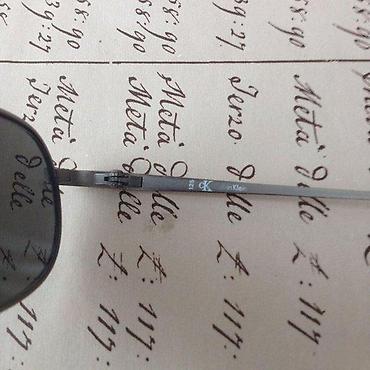 58:90 Metà delle £: 117:
39:27. Terzo delle £: 117:
58:90 Metà delle £: 117:
58:90 Metà delle £: 117:
58:90 Metà
39:27 Terzo delle £: 117:
125 cK Klein